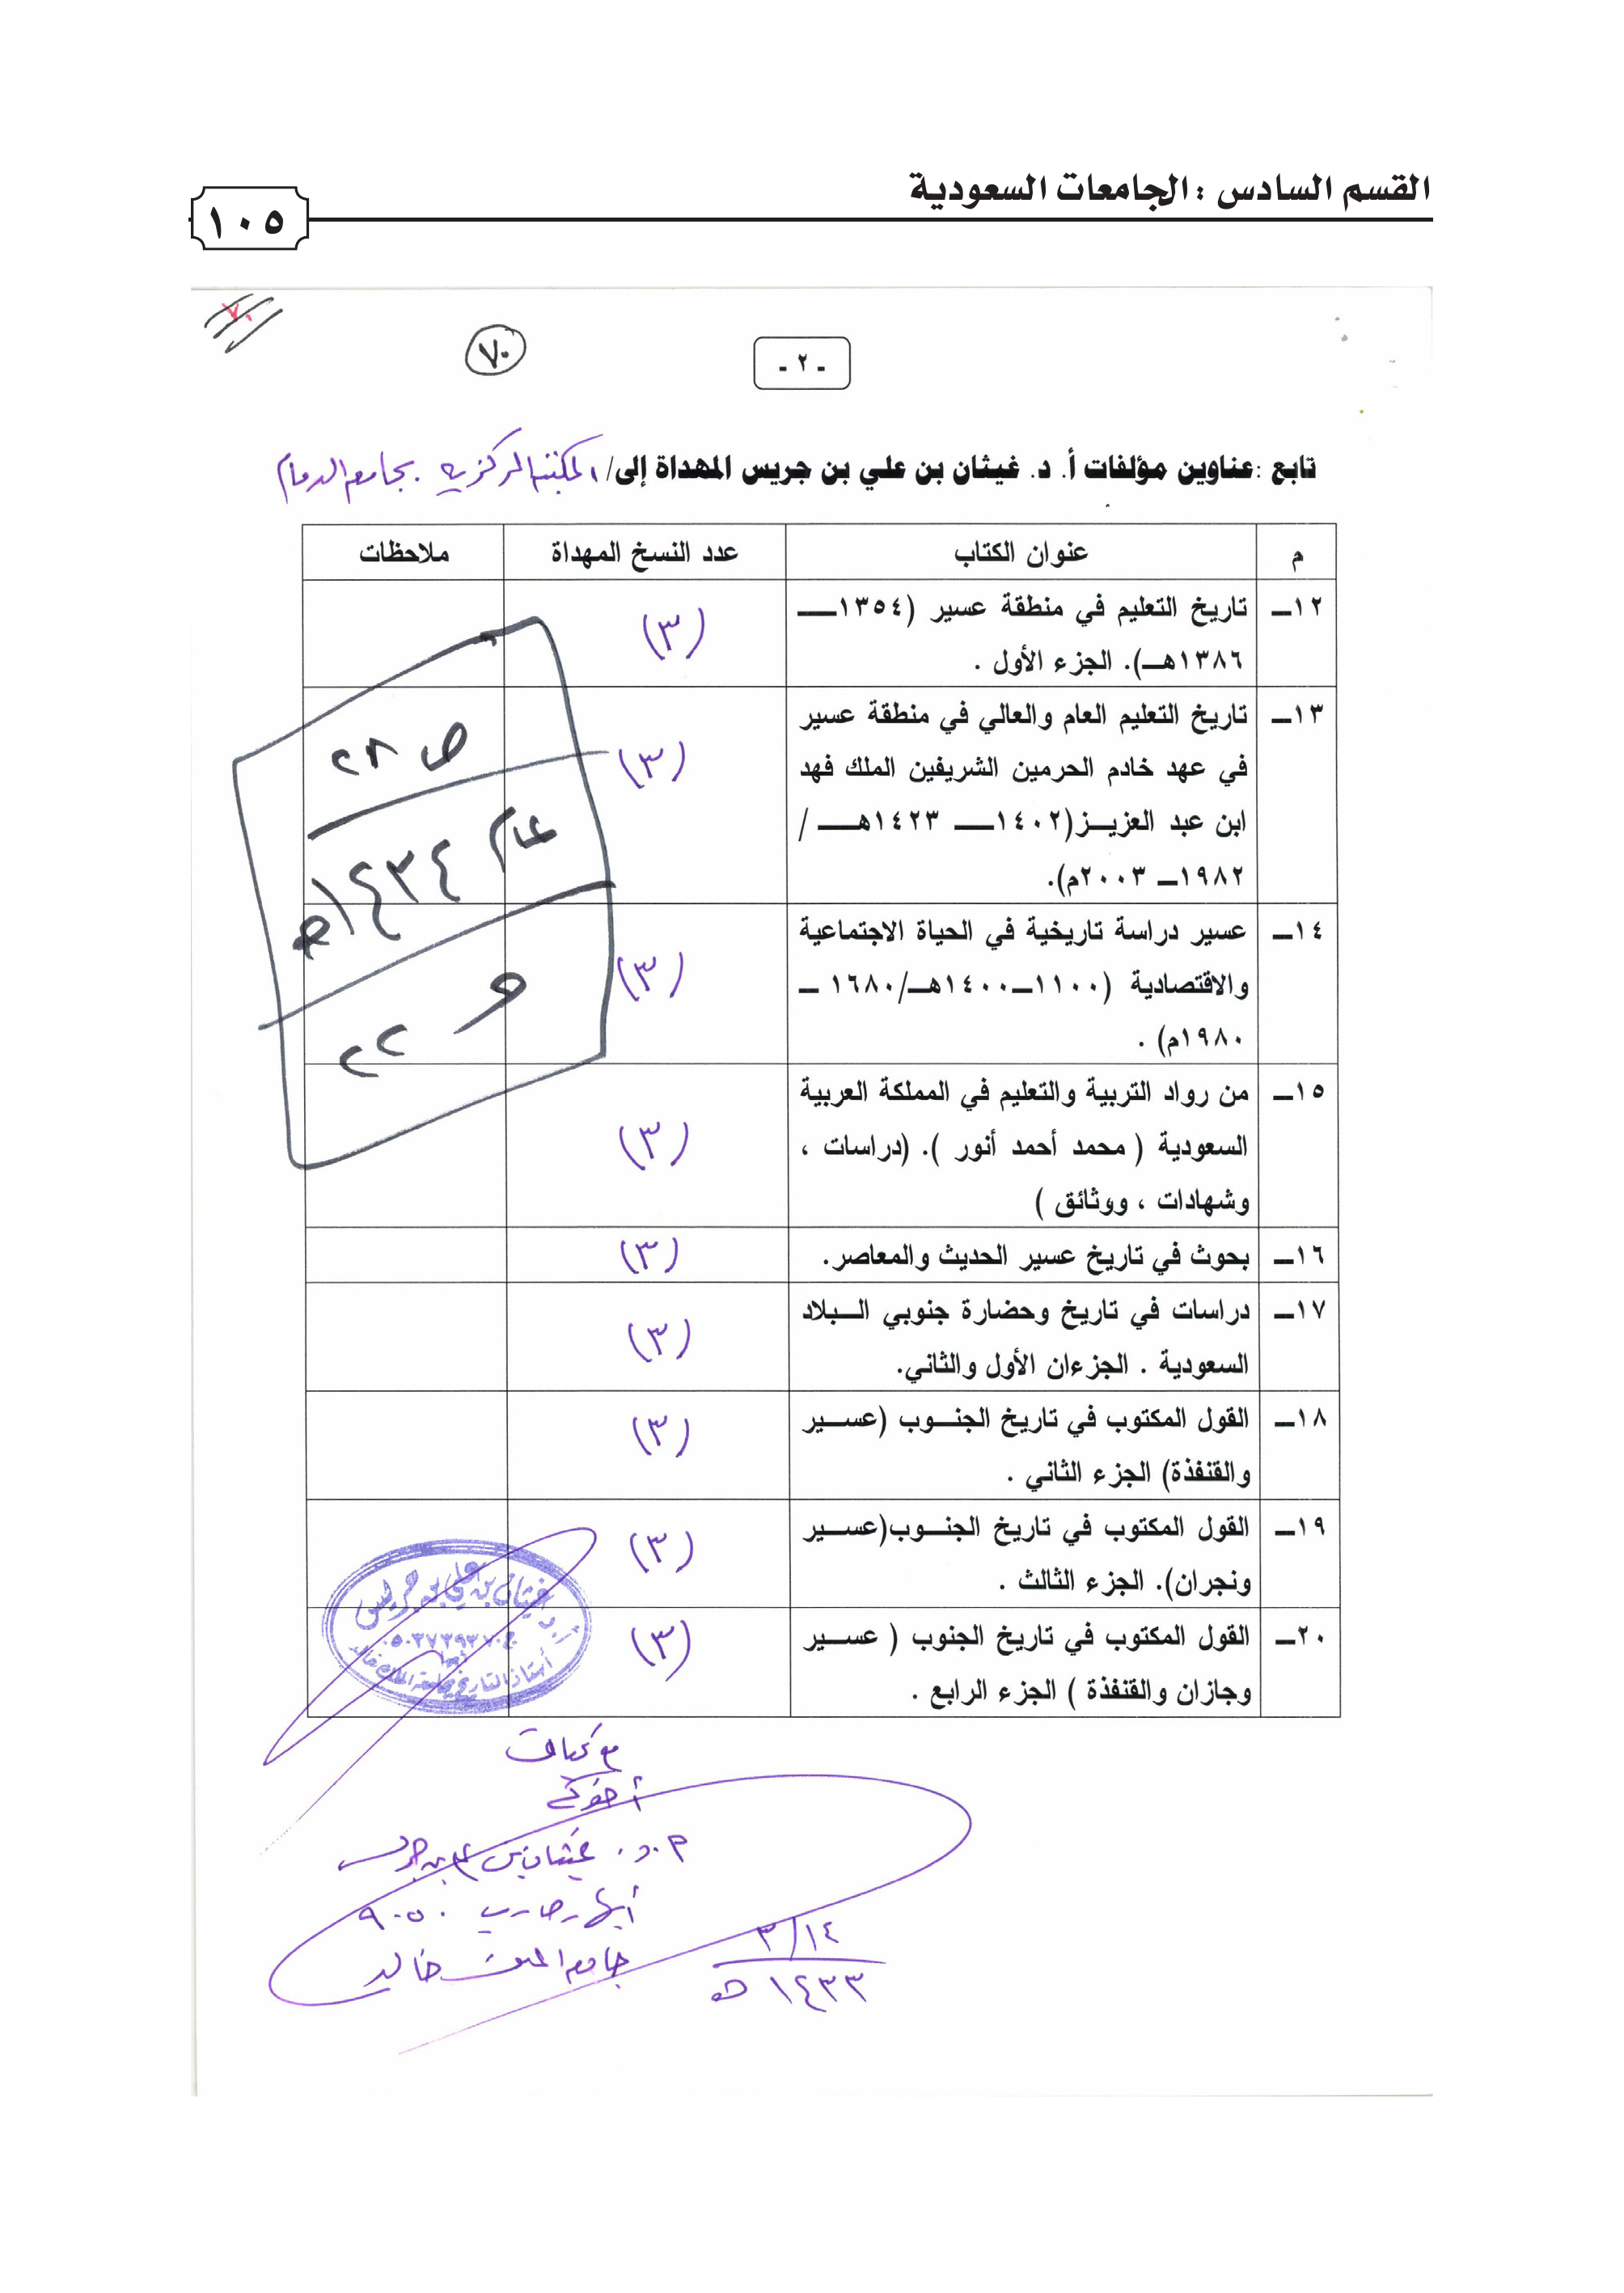 القسم السادس : الجامعات السعودية
١٠٥
٧٠
٧٠
- ٢ -
تابع :عناوين مؤلفات أ. د. غيثان بن علي بن جريس المهداة إلى/ المكتبة المركزية بجامعة الدمام
م عنوان الكتاب عدد النسخ المهداة ملاحظات
١٢ــ تاريخ التعليم في منطقة عسير (١٣٥٤ــ (٣)
١٣٨٦هــ). الجزء الأول .
١٣ــ تاريخ التعليم العام والعالي في منطقة عسير (٣)
في عهد خادم الحرمين الشريفين الملك فهد
ابن عبد العزيــز(١٤٠٢ــ ١٤٢٣هـــ /
١٩٨٢ــ ٢٠٠٣م).
١٤ــ عسير دراسة تاريخية في الحياة الاجتماعية (٣)
والاقتصادية (١١٠٠ــ١٤٠٠هــ/١٦٨٠ ــ
١٩٨٠م) .
١٥ــ من رواد التربية والتعليم في المملكة العربية (٣)
السعودية ( محمد أحمد أنور ). (دراسات ،
وشهادات ، ووثائق )
١٦ــ بحوث في تاريخ عسير الحديث والمعاصر. (٣)
١٧ــ دراسات في تاريخ وحضارة جنوبي الــبلاد (٣)
السعودية . الجزءان الأول والثاني.
١٨ــ القول المكتوب في تاريخ الجنــوب (عســير (٣)
والقنفذة) الجزء الثاني .
١٩ــ القول المكتوب في تاريخ الجنــوب(عســير (٣)
ونجران). الجزء الثالث .
٢٠ــ القول المكتوب في تاريخ الجنوب ( عســير (٣)
وجازان والقنفذة ) الجزء الرابع .
ص ٢٨
عام ١٤٣٤هـ
هـ ٢٢
أ.د غيثان بن علي بن جريس
ج٠٥٠٣٧٣٩٣٧٠
أبها
أستاذ التاريخ بجامعة الملك خالد
مع تحيات
أخوكم
أ.د. غيثان بن علي بن جريس
أبها ص.ب ٩٠٥٠
جامعة الملك خالد
١٤/٣
١٤٣٣هـ